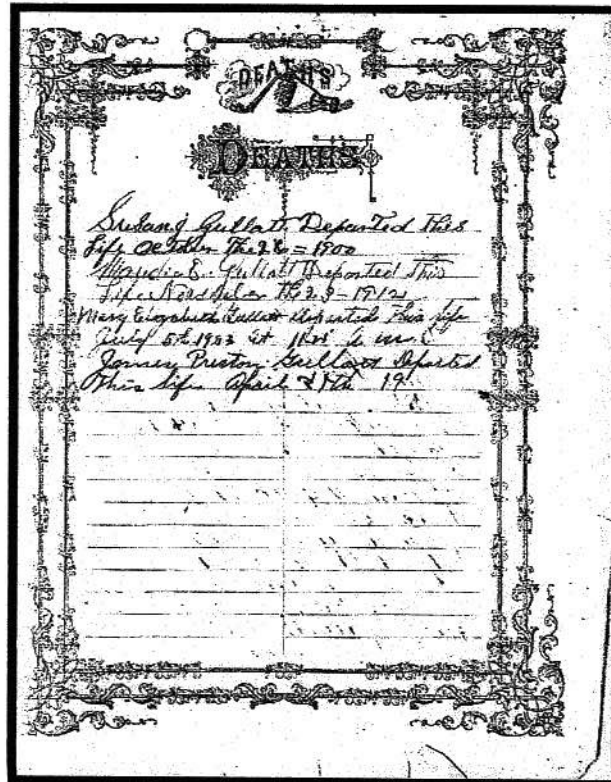 DEATHS
DEATHS
Gullatt Departed This
Life October The 28 = 1900
Maudie E. Gullatt Departed This
Life November The 23 - 1912
Mary Elizabeth Gullatt departed this life
5th at A M
James Preston Gullatt Departed
This life April 19